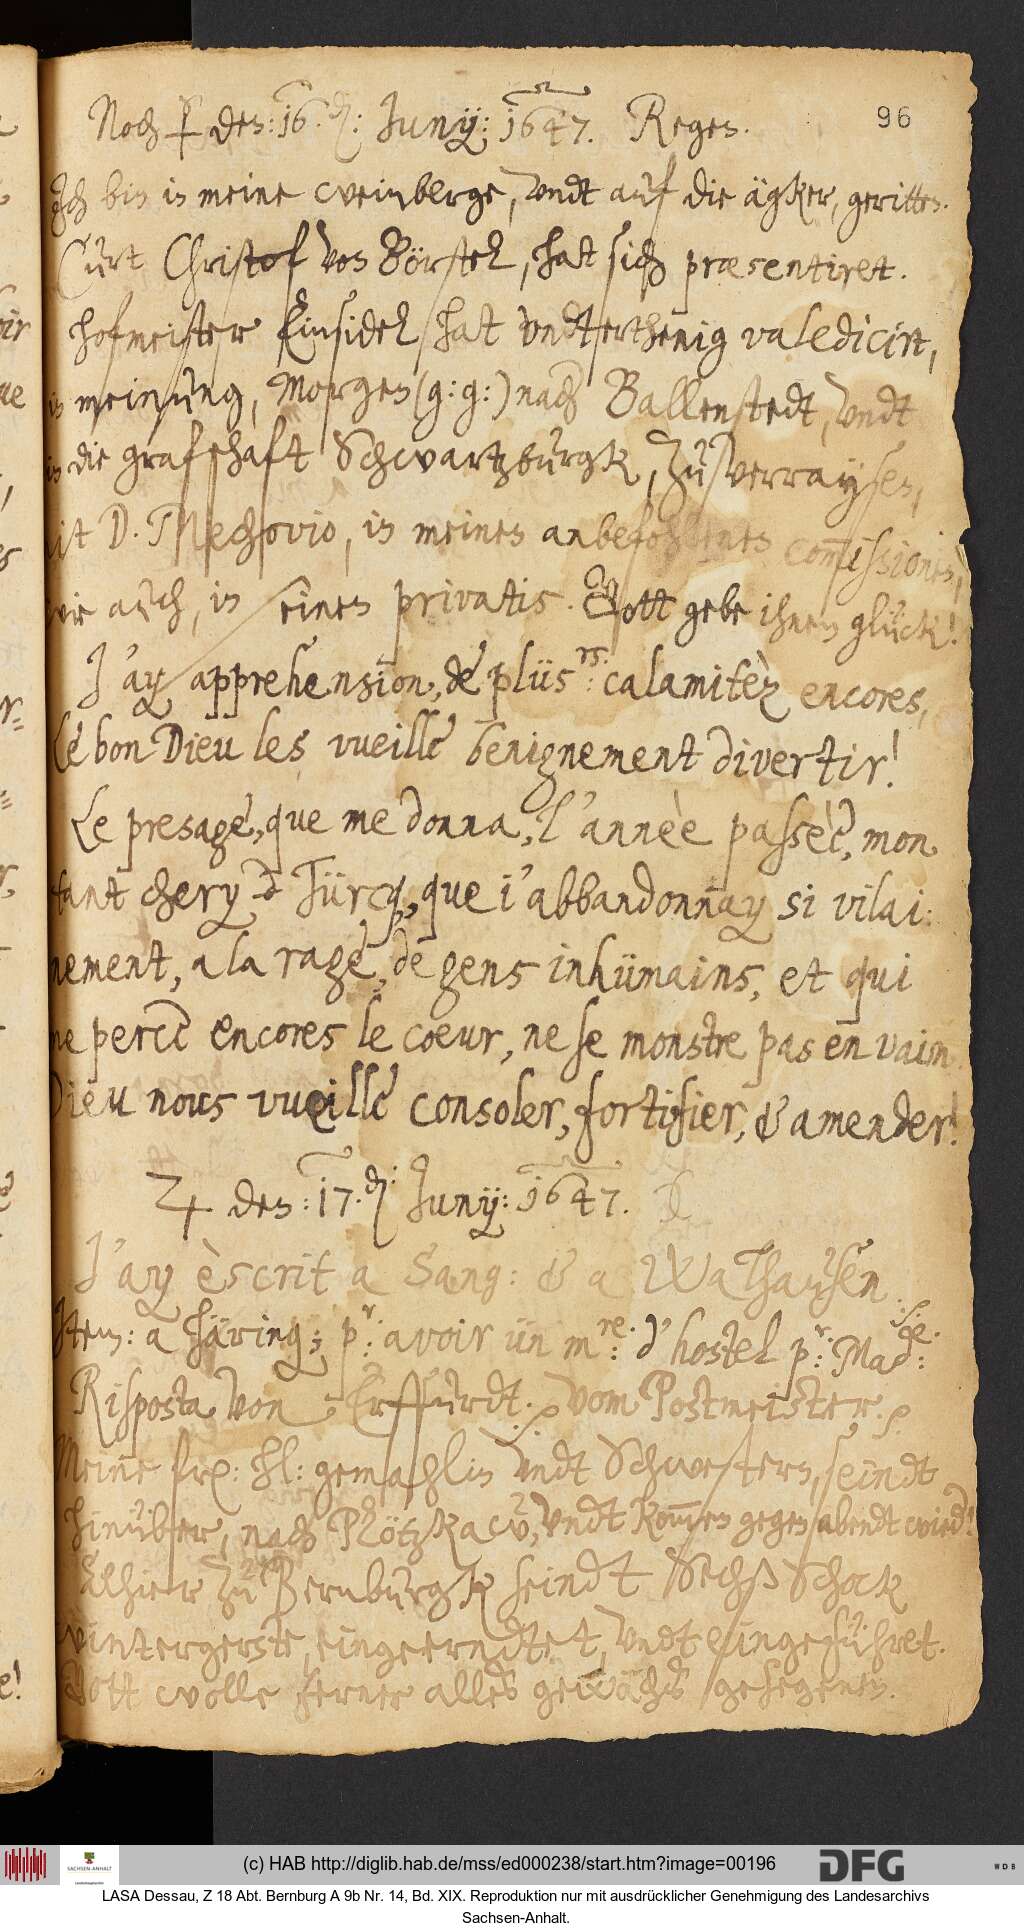 Noch ☿ des: 16. d: Junÿ: 1647. Reges. 96
Ich bin in meine weinberge, vndt auf die ägker, geritten.
Curt Christof von Börstel, hat sich præsentiret.
hofmeister Einsidel hat vndterthenig valedicirt,
in meinung, Morgen (g: g:) nach Ballenstedt, vndt
in die grafschaft Schwartzburgk, zu verraysen,
mit D. Mechovio, in meinen anbefohlenen com̄issionen,
wie auch, in seinen privatis. Gott gebe ihnen glück!
J'ay apprehension, de plüs:rs: calamitèz encores,
Le bon Dieu les vueille benignement divertir!
Le presage, que me donna, l'annèe passèe, mon
tant chery Türcq, que i'abbandonnay si vilai:
nement, a la rage, de gens inhümains, et qui
me perce encores le coeur, ne se monstre pas en vain.
Dieu nous vueille consoler, fortifier, & amender!
♃ den: 17. d: Junÿ: 1647.
J'ay èscrit a Sang: & a Walhausen
Item: a Häring; p:r avoir ün m:re d'hostel p:r Mad:
Risposta von Erffurdt. vom Postmeister.
Meine fr: hl: gemahlin vndt Schwestern, seindt
hinüber, nach Plötzkaw, vndt kom̄en gegen abendt wied!
Alhier zu Bernburgk seindt Sechß Schock
wintergerste, eingeerndtet, vndt eingeführet.
Gott wolle ferner alles gewächß gesegenen.
(c) HAB http://diglib.hab.de/mss/ed000238/start.htm?image=00196
SACHSEN-ANHALT
DFG
WDB
LASA Dessau, Z 18 Abt. Bernburg A 9b Nr. 14, Bd. XIX. Reproduktion nur mit ausdrücklicher Genehmigung des Landesarchivs
Sachsen-Anhalt.